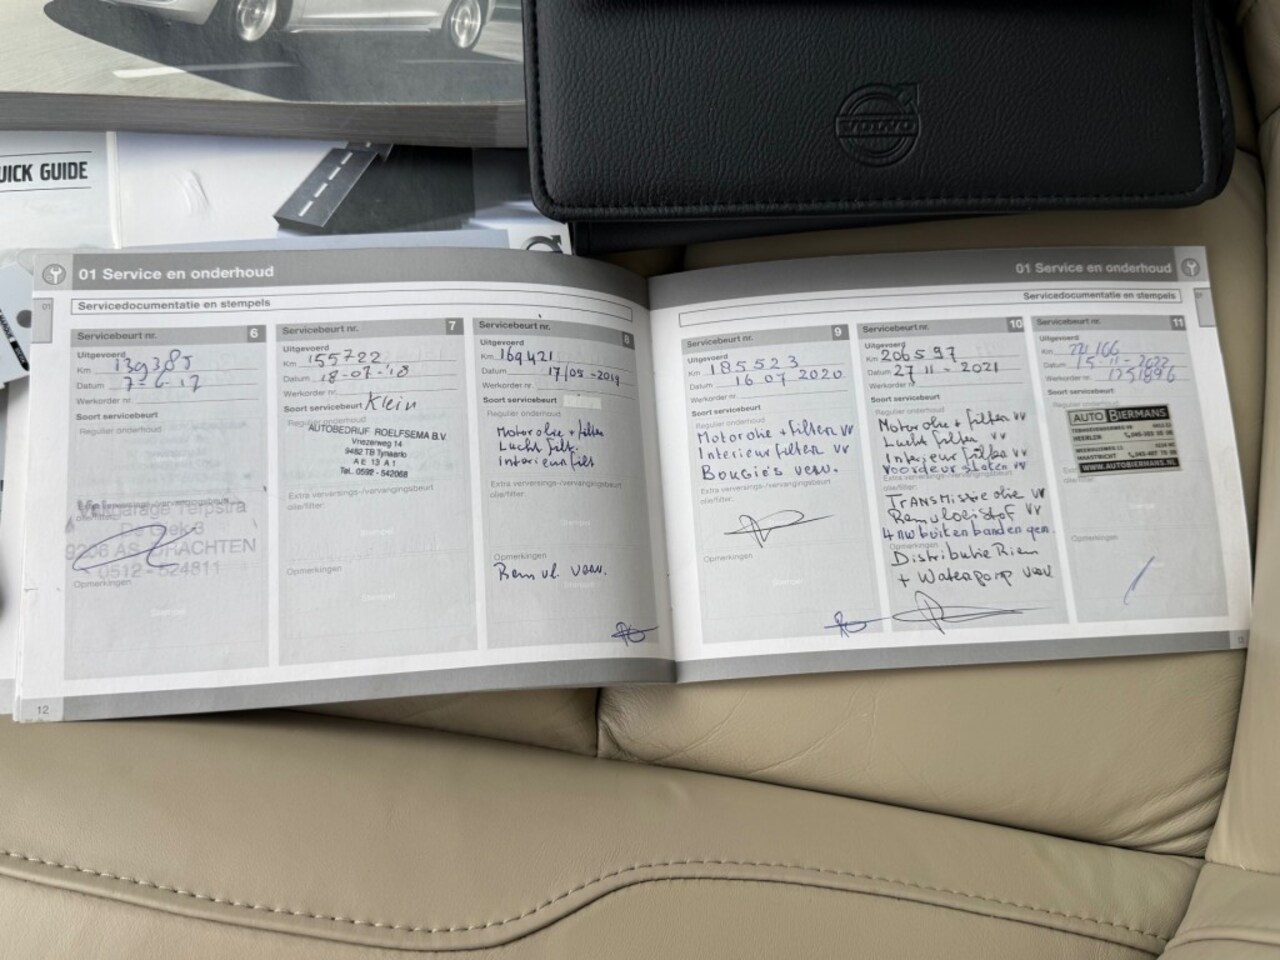 UICK GUIDE
VOLVO
01 Service en onderhoud
01
Servicedocumentatie en stempels
Servicebeurt nr. 6
Uitgevoerd
Km 139385
Datum 7-6-17
Werkorder nr.
Soort servicebeurt
Regulier onderhoud
Vakgarage Terpstra
De Giek 3
9206 AS DRACHTEN
0512-524811
Opmerkingen
Servicebeurt nr. 7
Uitgevoerd
Km 155722
Datum 18-07-'18
Werkorder nr.
Soort servicebeurt Klein
Regulier onderhoud
AUTOBEDRIJF ROELFSEMA B.V.
Vriezerweg 14
9482 TB Tynaarlo
A E 13 A 1
Tel. 0592 - 542068
Extra verversings-/vervangingsbeurt
olie/filter:
Opmerkingen
Servicebeurt nr. 8
Uitgevoerd
Km 169421
Datum 17/05-2019
Werkorder nr.
Soort servicebeurt
Regulier onderhoud
Motorolie + filter
Lucht filt.
Interieurfilt
Extra verversings-/vervangingsbeurt
olie/filter:
Opmerkingen
Remvl. verv.
12
01 Service en onderhoud
Servicedocumentatie en stempels
Servicebeurt nr. 9
Uitgevoerd
Km 185523
Datum 16 07 2020
Werkorder nr.
Soort servicebeurt
Regulier onderhoud
Motorolie + filter vv
Interieurfilter vv
Bougie's verv.
Extra verversings-/vervangingsbeurt
olie/filter:
Opmerkingen
Servicebeurt nr. 10
Uitgevoerd
Km 206597
Datum 27 11 - 2021
Werkorder nr.
Soort servicebeurt
Regulier onderhoud
Motorolie + filter vv
Lucht filter vv
Interieur filter vv
Voordeur sloten vv
Extra verversings-/vervangingsbeurt
olie/filter:
Transmissie olie vv
Remvloeistof vv
4 nw buitenbanden gem.
Opmerkingen
Distributie Riem
+ Waterpomp verv
Servicebeurt nr. 11
Uitgevoerd
Km
Datum 15-11-2022
Werkorder nr. 1251896
Soort servicebeurt
Regulier onderhoud
AUTO BIERMANS
HEERLEN
MAASTRICHT
WWW.AUTOBIERMANS.NL
Extra verversings-/vervangingsbeurt
olie/filter:
Opmerkingen
13